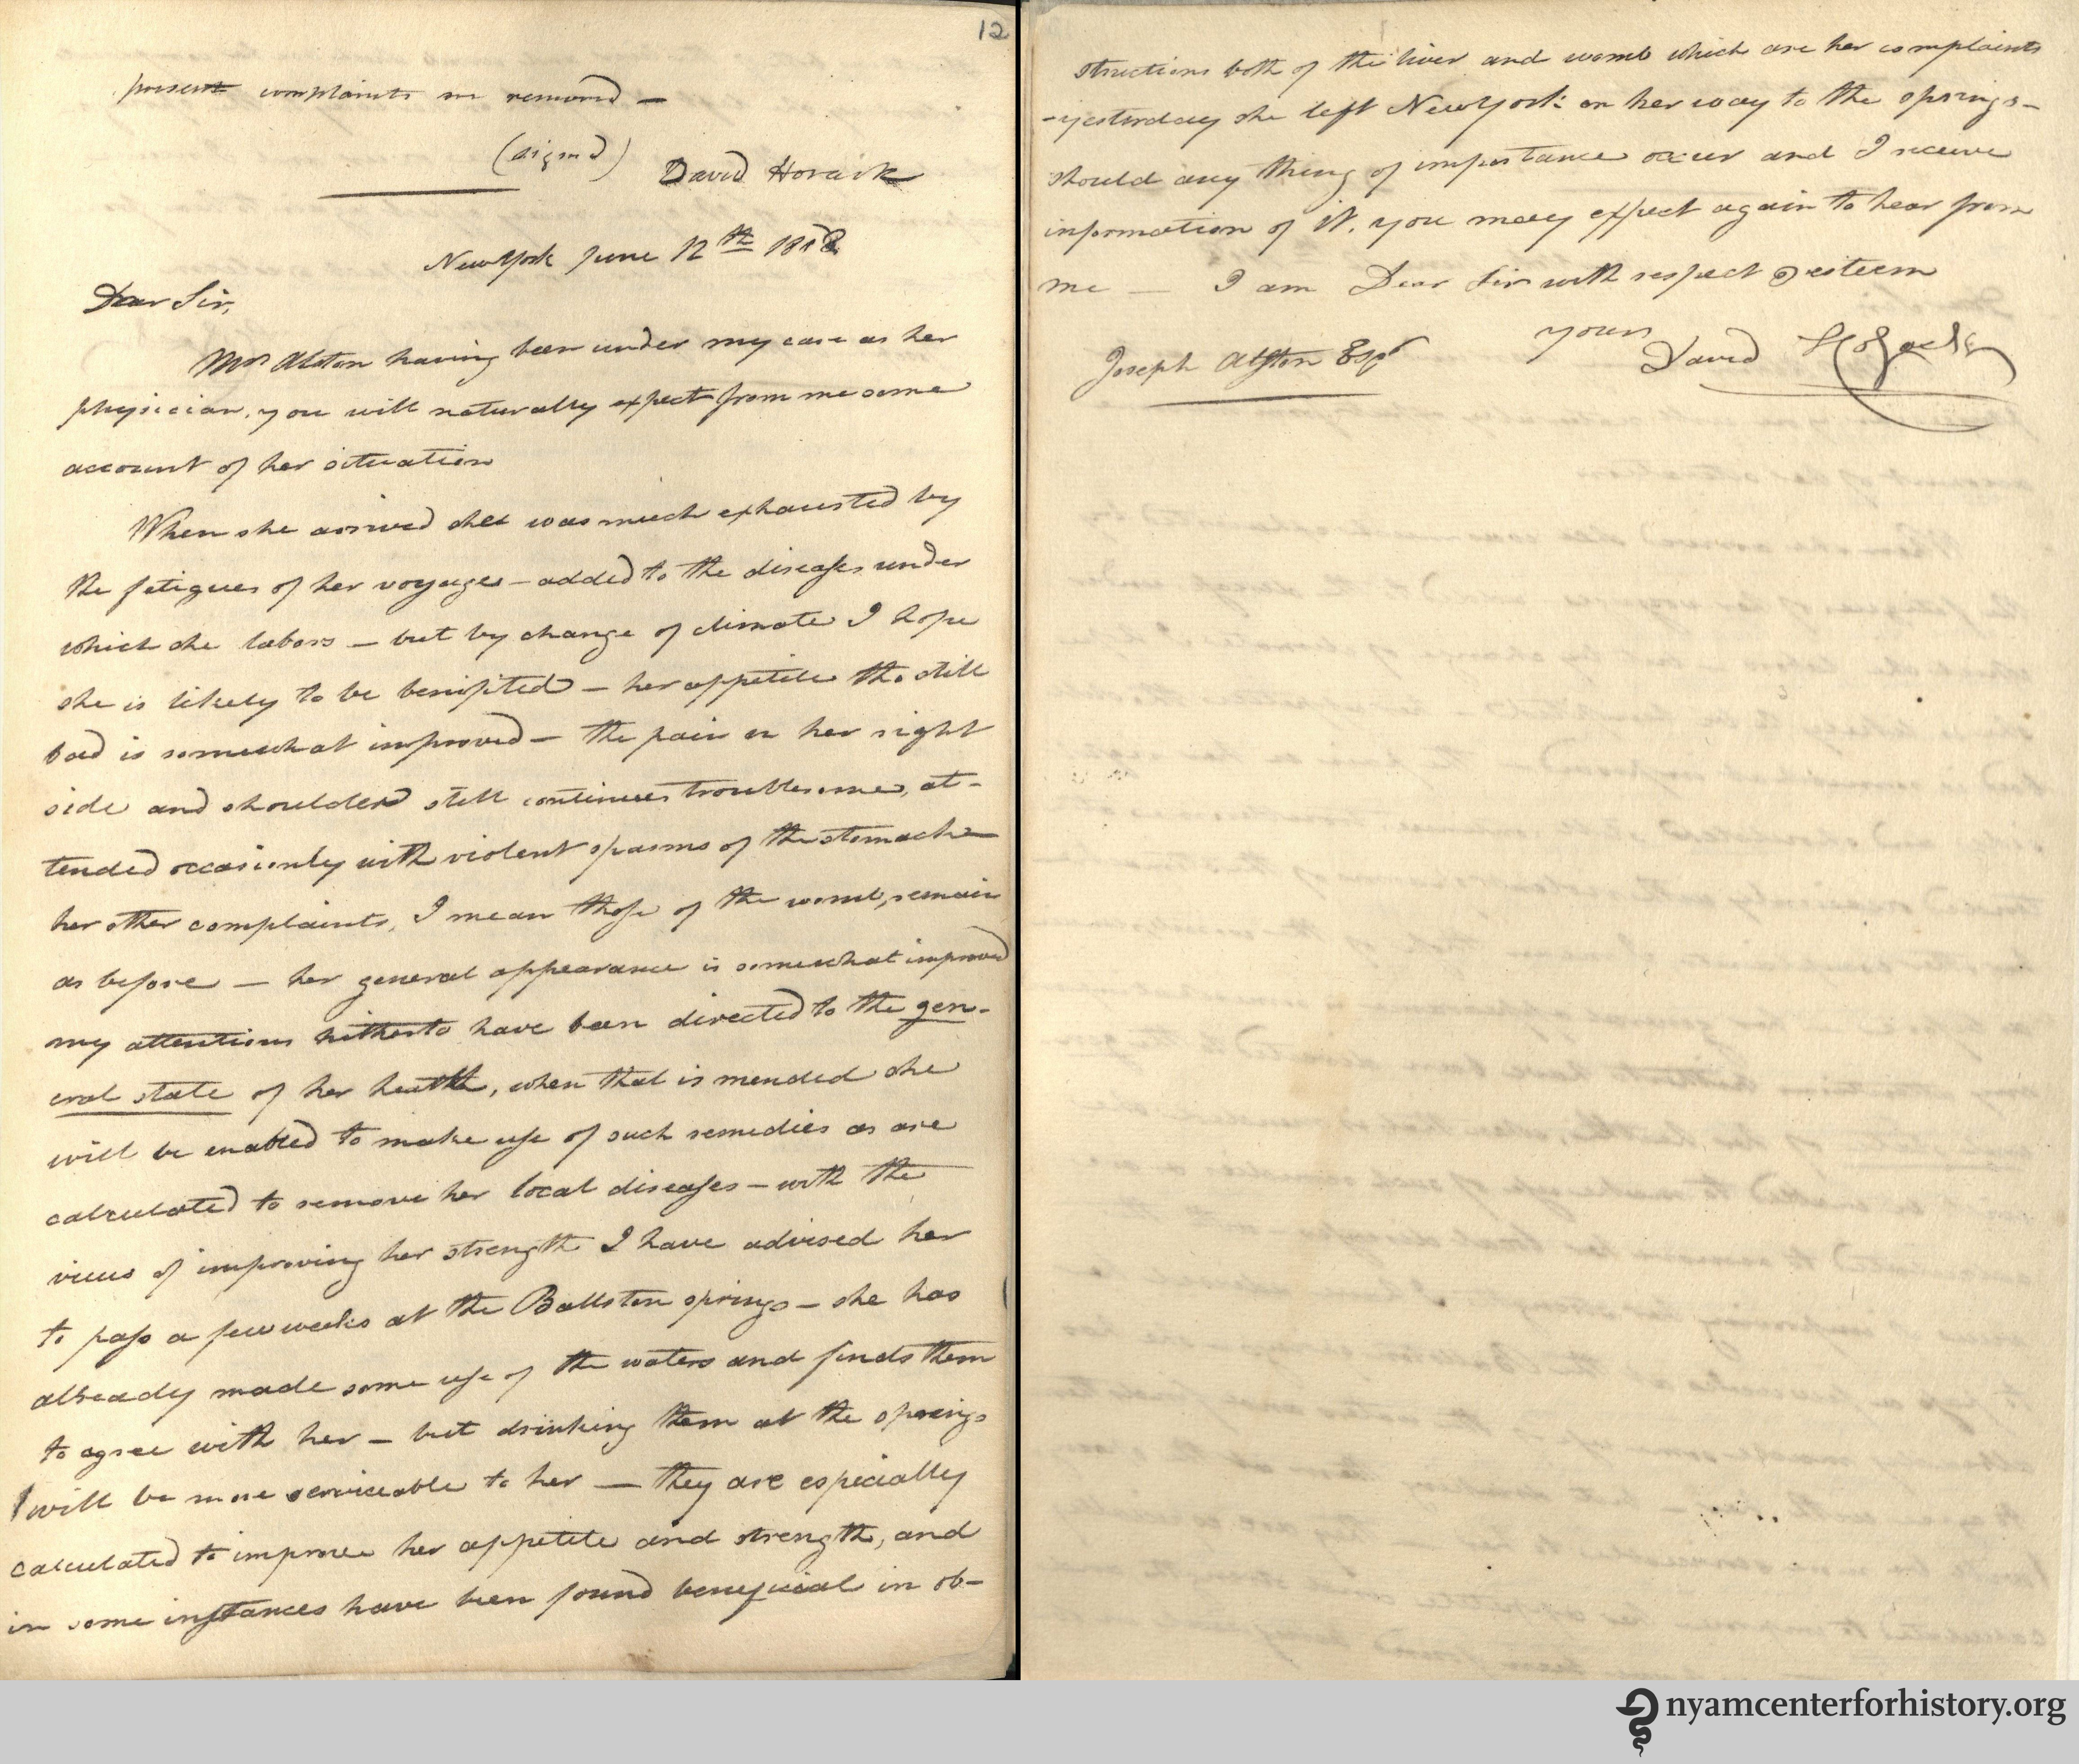 12
present complaints are removed —
(signed)
David Hosack
New York June 12th 1808
Dear Sir,
Mrs Alston having been under my care as her
physician, you will naturally expect from me some
account of her situation
When she arrived she was much exhausted by
the fatigues of her voyage – added to the diseases under
which she labors – but by change of climate I hope
she is likely to be benifited – her appetite tho still
bad is somewhat improved – the pain in her right
side and shoulder still continues troublesome, at-
tended occasionly with violent spasms of the stomach –
her other complaints, I mean those of the womb, remain
as before — her general appearance is somewhat improved
my attentions hitherto have been directed to the gen-
eral state of her health, when that is mended she
will be enabled to make use of such remedies as are
calculated to remove her local diseases – with the
view of improving her strength I have advised her
to pass a few weeks at the Ballston springs – she has
already made some use of the waters and finds them
to agree with her – but drinking them at the springs
will be more serviceable to her — they are especially
calculated to improve her appetite and strength, and
in some instances have been found beneficial in ob-
structions both of the liver and womb which are her complaints
– yesterday she left New York on her way to the springs –
should any thing of importance occur and I receive
information of it, you may expect again to hear from
me — I am Dear Sir with respect & esteem
yours
Joseph Alston Esqr David Hosack
nyamcenterforhistory.org